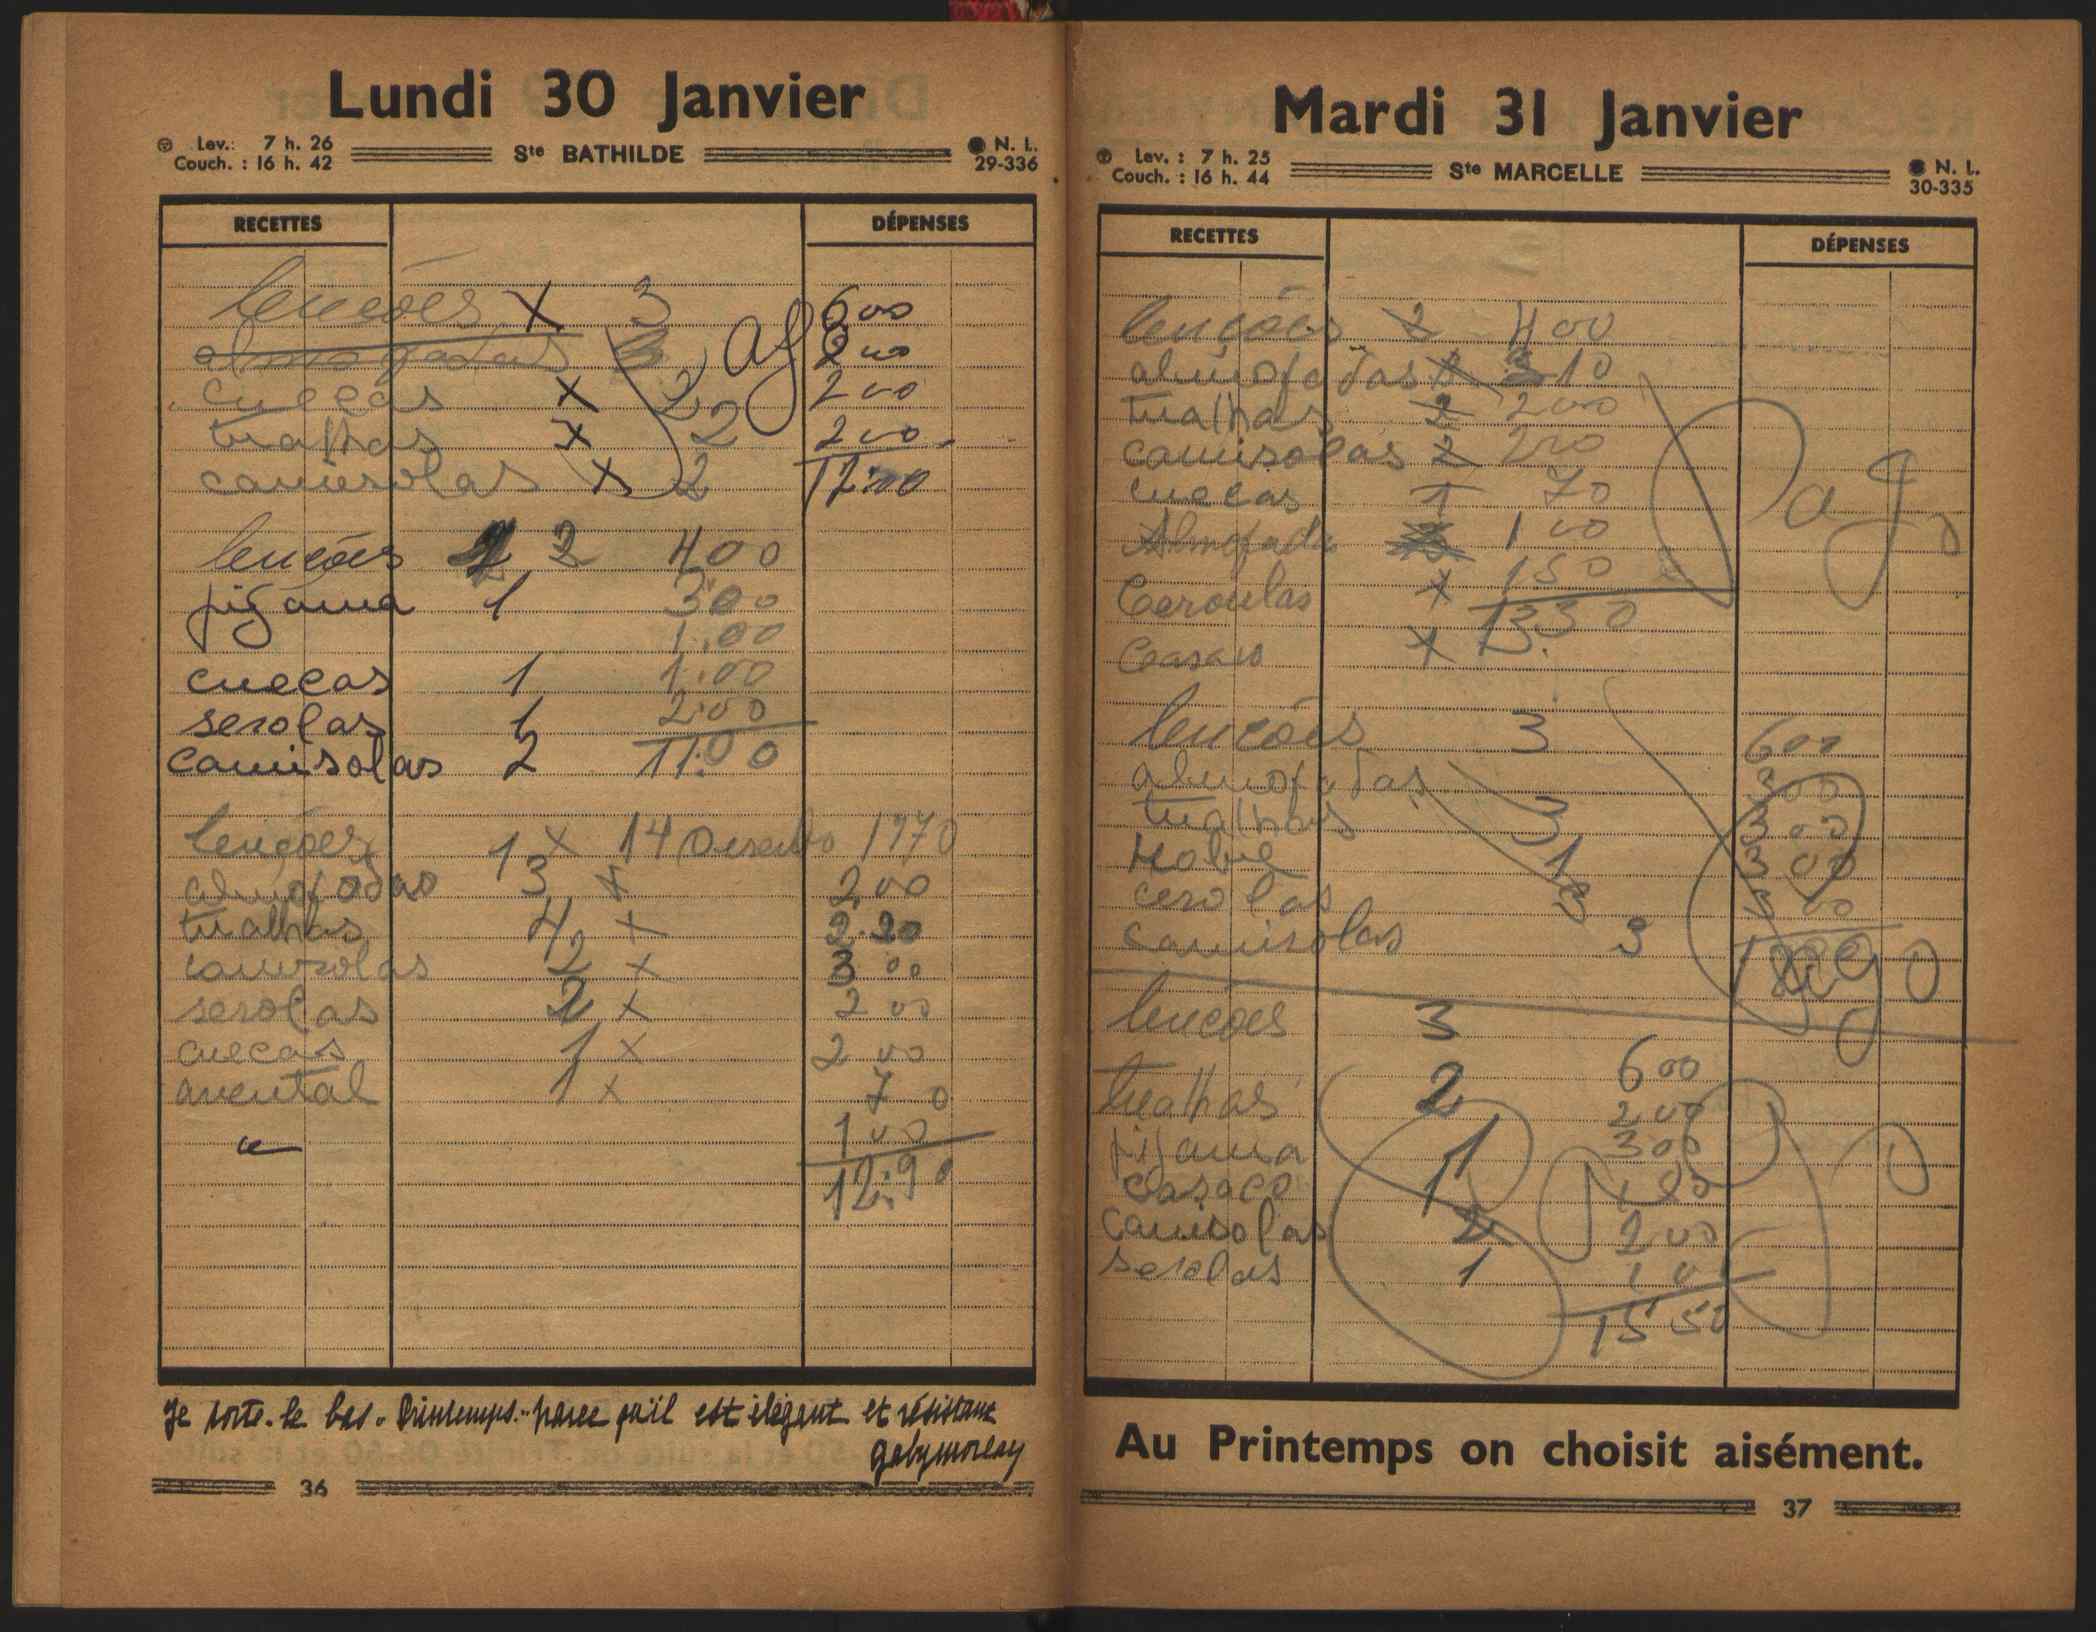 Lundi 30 Janvier
Lev.: 7 h. 26
Couch. : 16 h. 42
Ste BATHILDE
N. L.
29-336
RECETTES DÉPENSES
lencóes x 3 600
almogadas 3 200
cuecas x 2 200
tualhas x 2 200
camisolas x 2 12.00
lencóes 2 400
pijama 1 300
1.00
cuecas 1 1.00
serolas 1 2.00
camisolas 2 11.00
lençóes 1 x 14 1970
almofadas 3 x 2,00
tualhas 4 x 2.20
camisolas 2 x 3 00
serolas 2 x 2 00
cuecas 1 x 2 00
avental 1 x 7 0
1 00
12.90
Je porte le bas "Printemps" parce qu'il est élégant et résistant
Gaby Morlay
36
Mardi 31 Janvier
Lev. : 7 h. 25
Couch. : 16 h. 44
Ste MARCELLE
N. L.
30-335
RECETTES DÉPENSES
lencóes 2 400
almofadas 10
tualhas 2 200
camisolas 2 200
cuecas 1 70
Almofada 1 00
Ceroulas x 150
1330
x 13.
lencóes 3 600
almofadas 300
tualhas 3 300
1 300
cerolas 3 3 00
camisolas 3
lencóes 3
600
tualhas 2 200
pijama 1 300
casaco 1
camisolas 2 200
serolas 1 1 0
15 50
Au Printemps on choisit aisément.
37